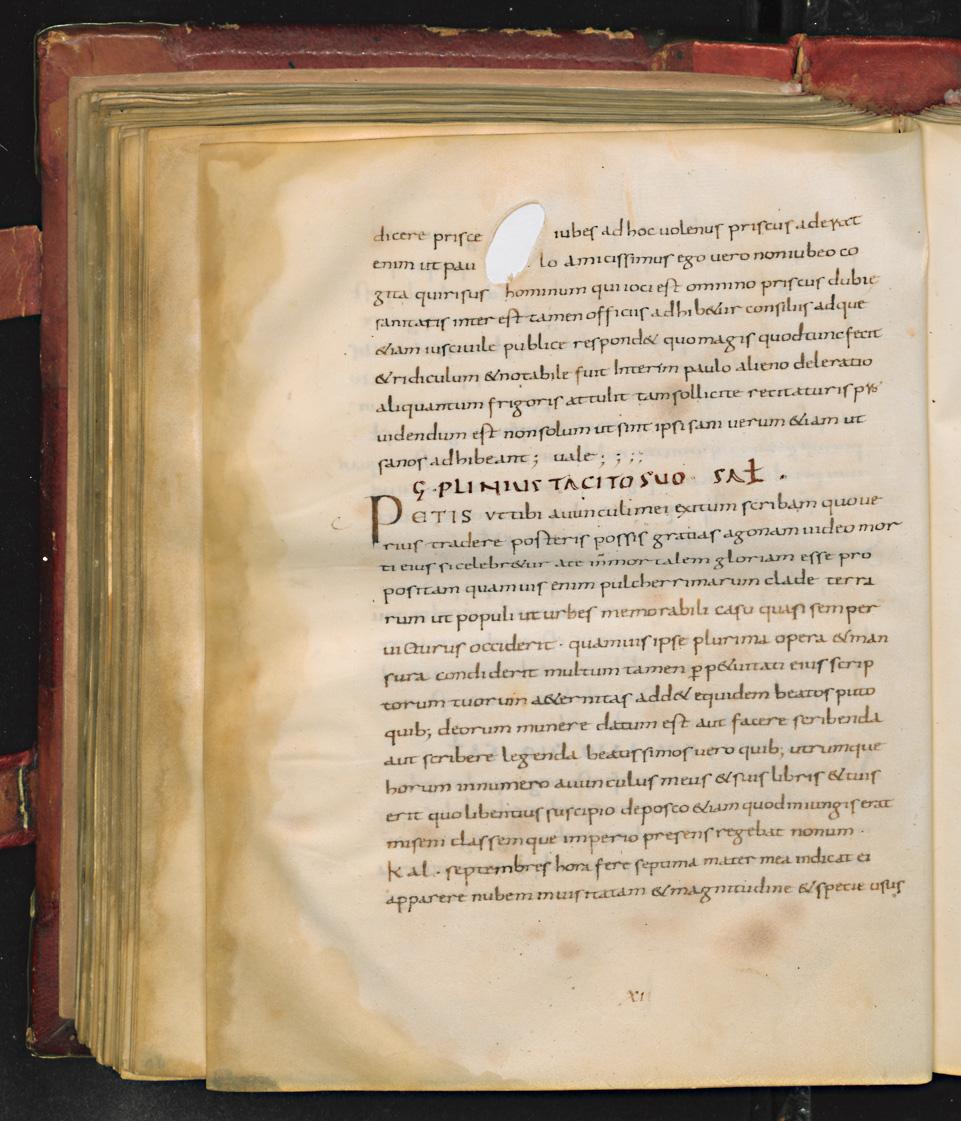 dicere prisce iubes ad hoc uolenus priscus aderat
enim ut pau lo amicissimus ego uero non iubeo co
gita quirisus hominum qui ioci est omnino priscus dubie
sanitatis inter est tamen officiis adhib&ur consiliis adque
&iam ius ciuile publice respond& quo magis quod tunc fecit
& ridiculum & notabile fuit Interim paulo alieno deleratio
aliquantum frigoris attulit tam sollicite recitaturis
uidendum est non solum ut sint ipsi sani uerum &iam ut
sanos adhibeant; uale; ; ;;
Ç·PLINIUS TACITO SUO SAŁ .
PETIS ut tibi auunculi mei exitum scribam quo ue
rius tradere posteris possis gratias ago nam uideo mor
ti eius si celebr&ur ate inmortalem gloriam esse pro
positam quamuis enim pulcherrimarum clade terra
rum ut populi ut urbes memorabili casu quasi semper
uicturus occiderit · quamuis ipse plurima opera & man
sura condiderit multum tamen ꝑp&uitati eius scrip
torum tuorum a&ernitas add& equidem beatos puto
quib; deorum munere datum est aut facere scribenda
aut scribere legenda beatissimos uero quib; utrumque
horum in numero auunculus meus & suis libris & tuis
erit quo libentius suscipio deposco &iam quod iniungis erat
miseni classemque imperio presens regebat nonum ·
Kal · septembres hora fere septima mater mea indicat ei
apparere nubem inusitatam & magnitudine & specie usus
XII